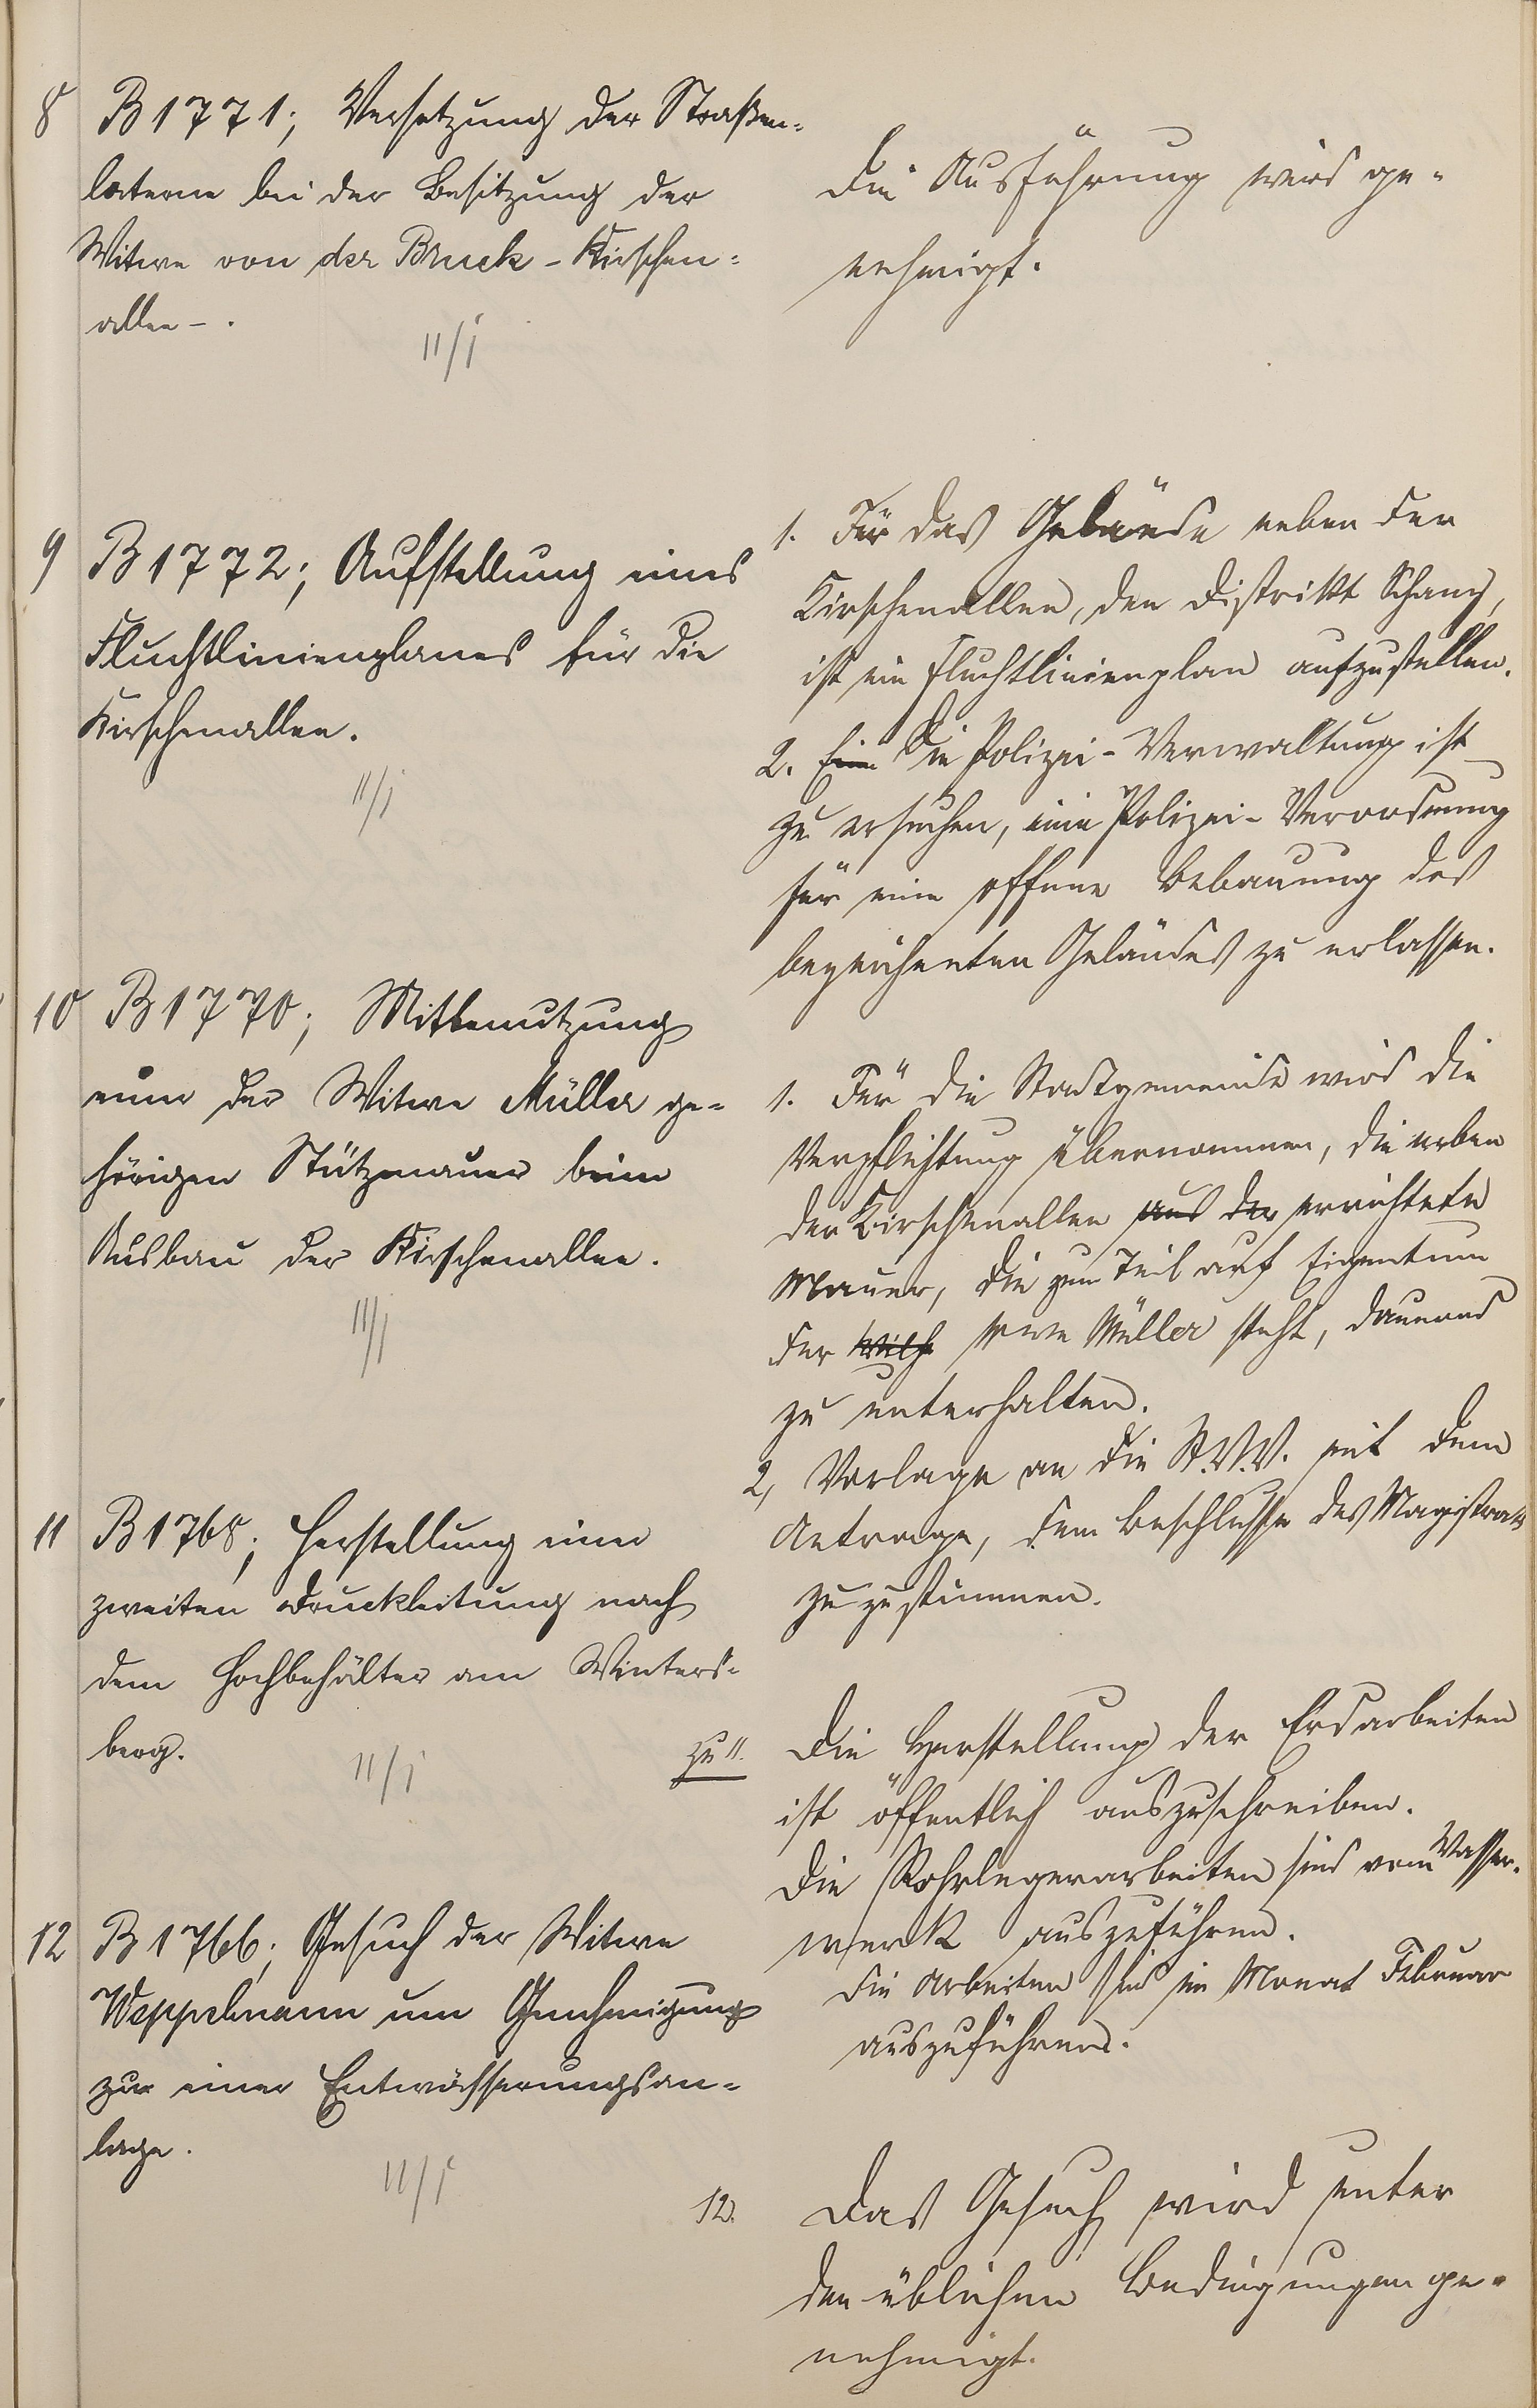 8 B 1771; Versetzung der Straßen-
laterne bei der Besitzung der
Witwe von der Bruck - Kirschen-
allee -.
11/1
Die Ausführung wird ge-
nehmigt.
9 B 1772; Aufstellung eines
Fluchtlinienplanes für die
Kirschenallee.
11/1
1. Für das Gelände neben der
Kirschenallee, den Distrikt Schanz,
ist ein Fluchtlinienplan aufzustellen.
2. Ein Die Polizei-Verwaltung ist
zu ersuchen, eine Polizei-Verordnung
für eine offene Bebauung des
bezeichneten Geländes zu erlassen.
10 B 1770; Mitbenutzung
einer der Witwe Müller ge-
hörigen Stützmauer beim
Ausbau der Kirschenallee.
11/1
1. Für die Stadtgemeinde wird die
Verpflichtung übernommen, die neben
der Kirschenallee aus der errichtete
Mauer, die zum Teil auf Eigentum
der Wwe Müller steht, dauernd
zu unterhalten.
2, Vorlage an die St.V.V. mit dem
Antrage, dem Beschlusse des Magistrats
zuzustimmen.
11 B 1768; Herstellung einer
zweiten Druckleitung nach
dem Hochbehälter am Winters-
berg.
11/1
zu 11. Die Herstellung der Erdarbeiten
ist öffentlich auszuschreiben.
Die Rohrlegerarbeiten sind vom Wasser-
werk auszuführen.
Die Arbeiten sind im Monat Februar
auszuführen.
12 B 1766; Gesuch der Witwe
Weppelmann um Genehmigung
zur einer Entwässerungsan-
lage.
11/1
12. Das Gesuch wird unter
den üblichen Bedingungen ge-
nehmigt.